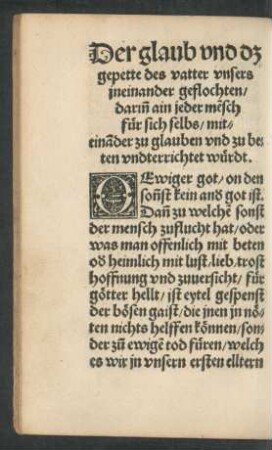 Der glaub vnd dz
gepette des vatter vnsers
jneinander geflochten/
dariñ ain jeder mẽsch
für sich selbs/ mit⸗
einãder zu glauben vnd zu be⸗
ten vndterrichtet würdt.
O Ewiger got/ on den
soñst kein and̕ got ist.
Dañ zu welchẽ sonst
der mensch zuflucht hat/ oder
was man offenlich mit beten
od̕ heimlich mit lust/ lieb/ trost
hoffnung vnd zuuersicht/ für
götter hellt/ ist eytel gespenst
der bösen gaist/ die jnen jn nö⸗
ten nichts helffen können/ son⸗
der zũ ewigẽ tod füren/ welch
es wir jn vnsern ersten elltern